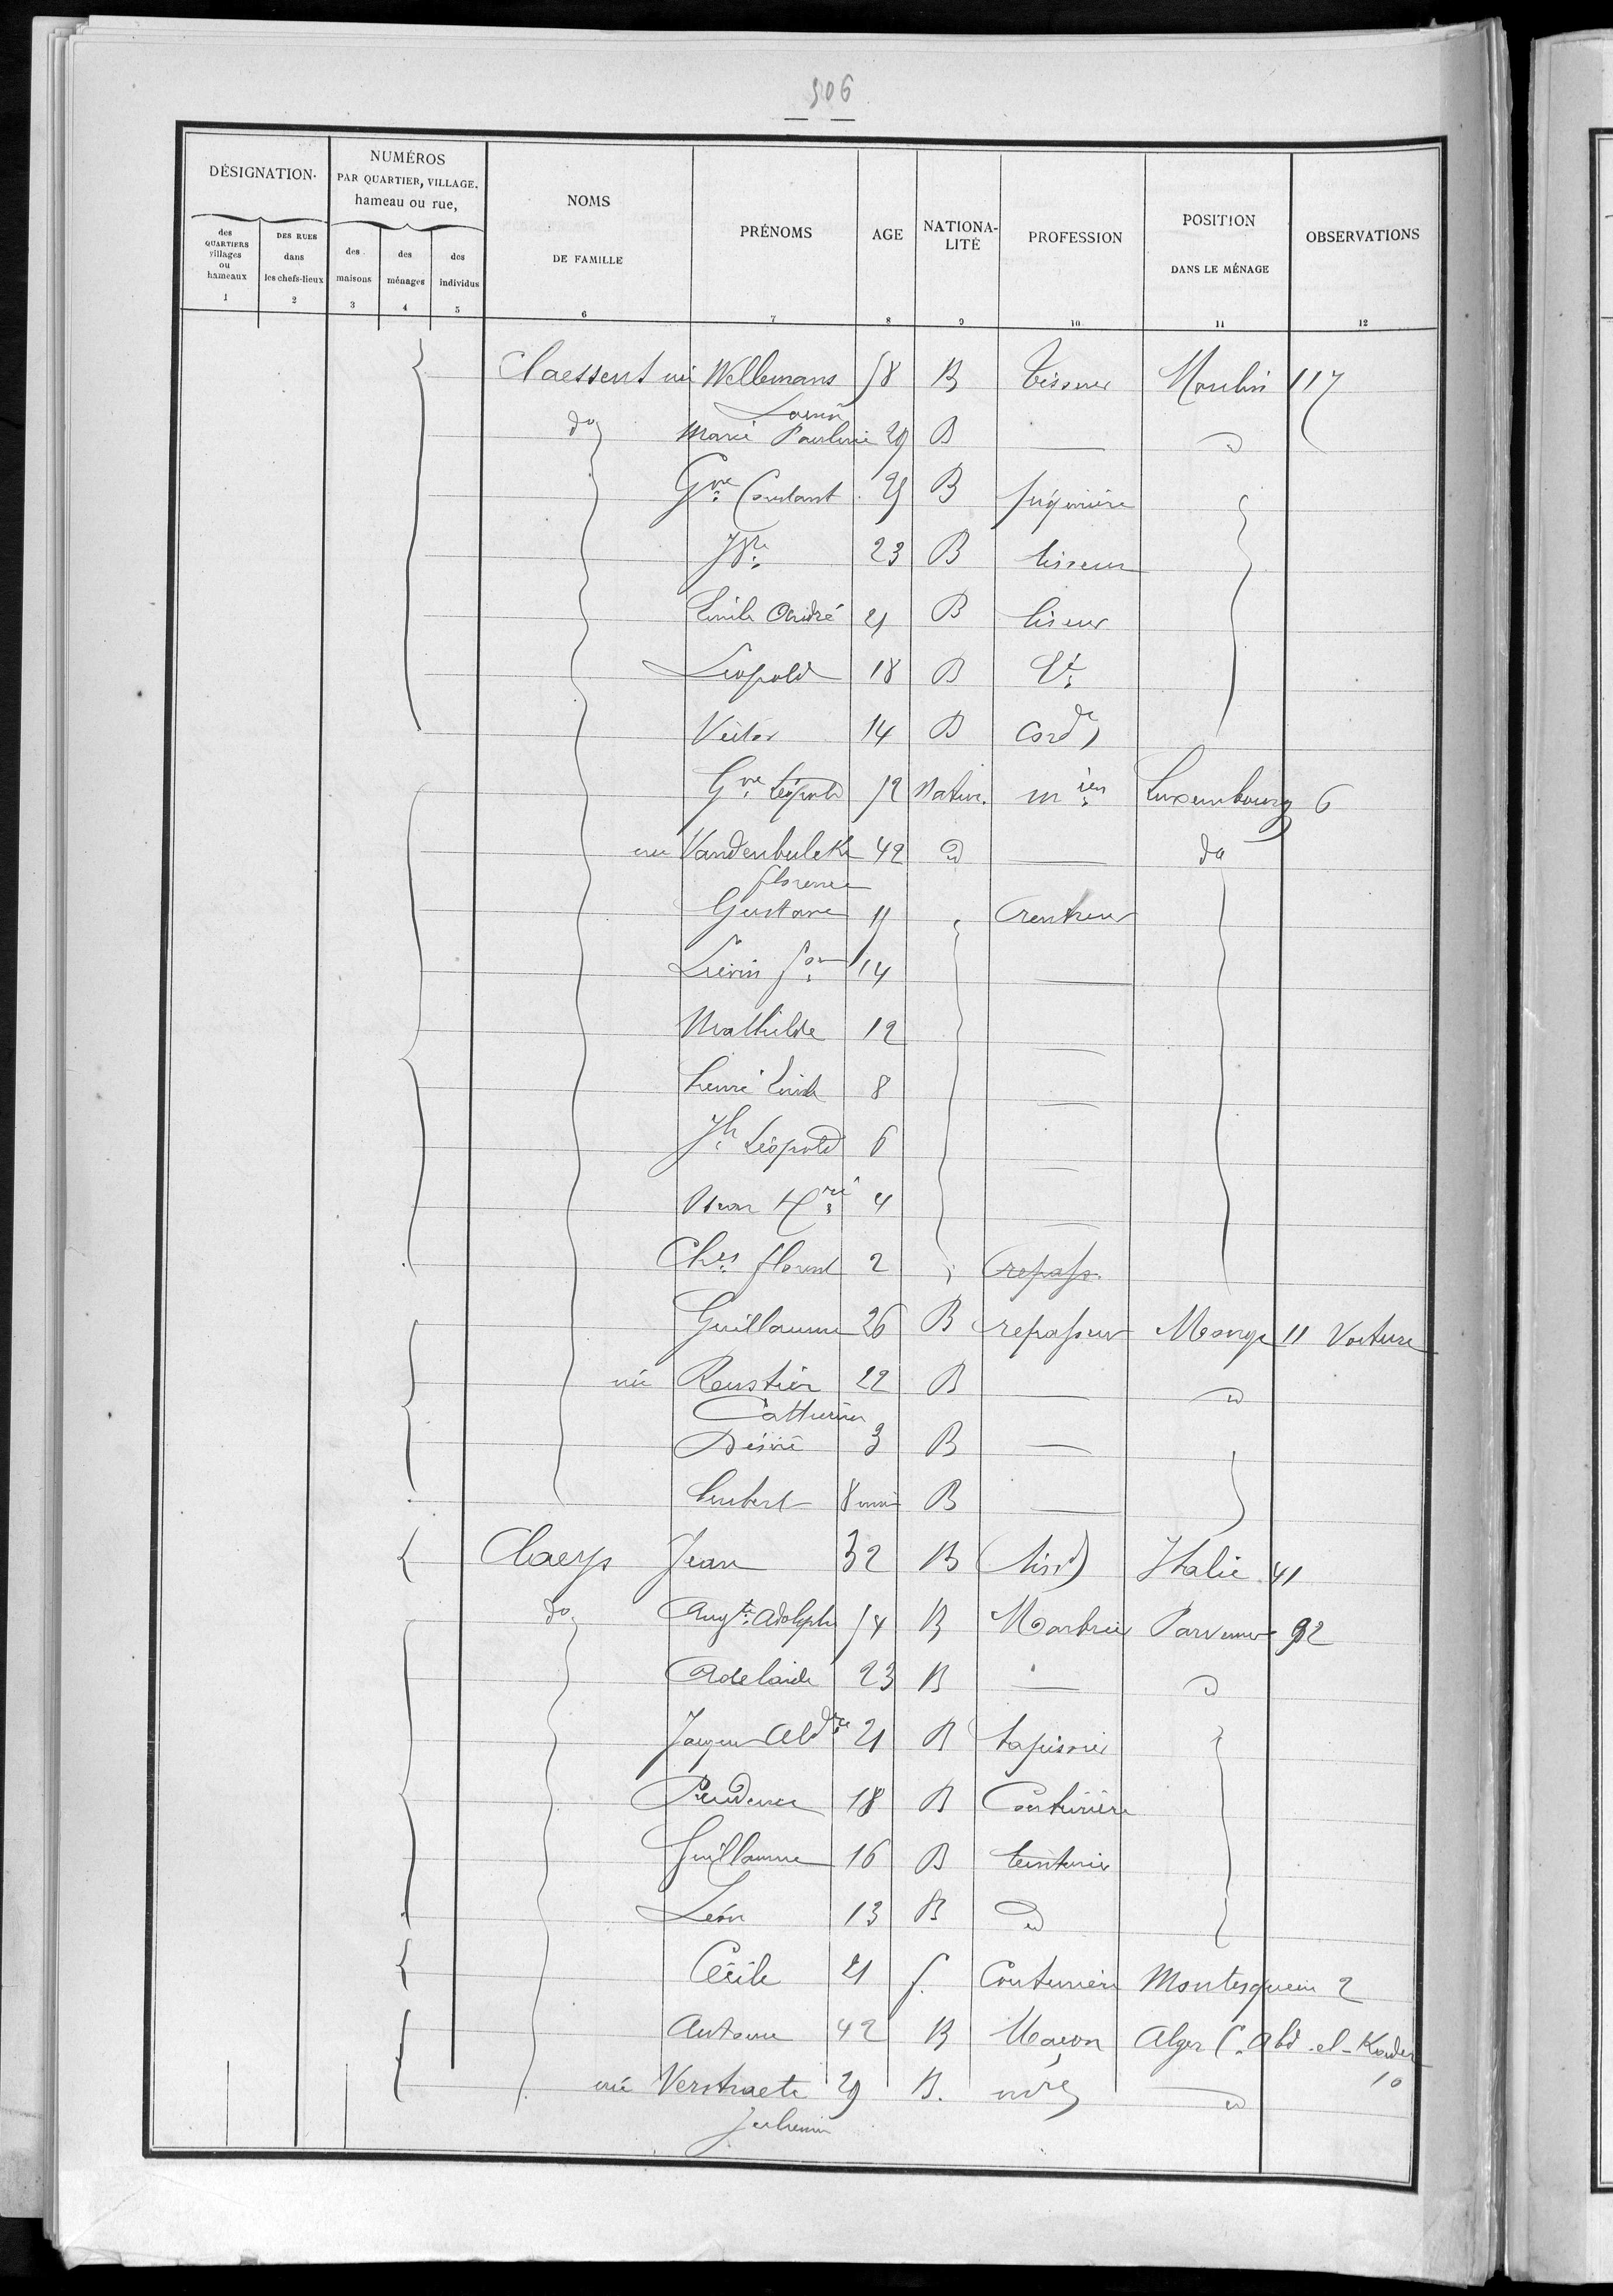 506
DÉSIGNATION.
des QUARTIERS villages ou hameaux
1
DES RUES dans les chefs-lieux
2
NUMÉROS
PAR QUARTIER, VILLAGE,
hameau ou rue,
des maisons
3
des ménages
4
des individus
5
NOMS
DE FAMILLE
6
PRÉNOMS
7
AGE
8
NATIONA-
LITÉ
9
PROFESSION
10
POSITION
DANS LE MÉNAGE
11
OBSERVATIONS
12
Claessens née Wellemans 58 B tisseur Moulin 117
do Marie Pauline 29 B — d
Gve Constant 25 B
23 B tisseur
Emile André 21 B liseur
Léopold 18 B
Victor 14 B cord
Gve Léopold 52 natur. mien Luxembourg 6
née Vandenbulcke 42 d — do
florence
Gustave 11 rentreur
Liévin fois 14 —
Mathilde 12 —
henri Emile 8 —
Jh Léopold 6 —
Oscar Hri 4 —
Chs florent 2 repass.
Guillaume 26 B repasseur Monge 11 Voiture
née Roustier 22 B — d
Catherine
Désiré 3 B —
hubert 8 mois B —
Claeys Jean 32 B tisrd Italie 41
do Augte Adolphe 54 B Marbrier 92
Adelaide 23 B — d
Jacques Aldre 21 B tapissier
Prudence 18 B Couturière
Guillaume 16 B teinturier
Léon 13 B d
Cécile 21 f. Couturière Montesquieu 2
Antoine 42 B Maçon Alger C. Abd-el-Kader
10
née Verstraete 29 B. mre d